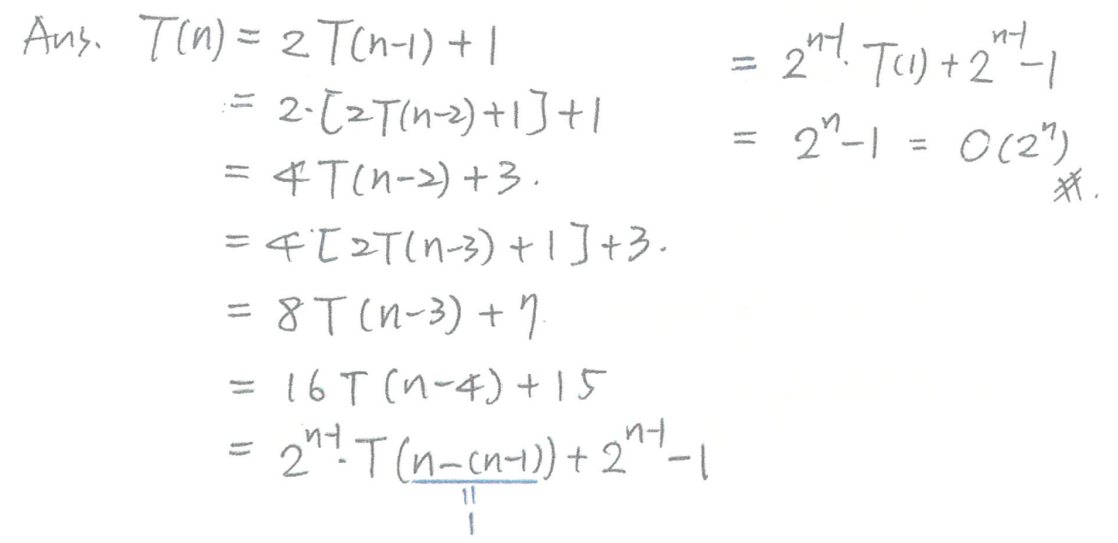 Ans. T(n) = 2T(n-1) + 1
= 2·[2T(n-2)+1]+1
= 4T(n-2)+3.
= 4·[2T(n-3)+1]+3.
= 8T(n-3)+7.
= 16T(n-4)+15
= 2^{n-1}·T(n-(n-1))+2^{n-1}-1
=
1
= 2^{n-1}·T(1)+2^{n-1}-1
= 2^n-1 = O(2^n)
#.